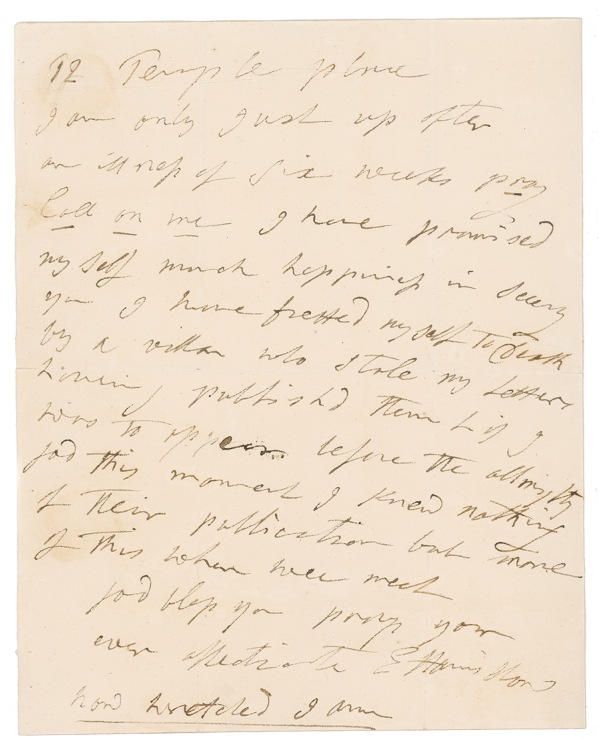 12 Temple place
I am only Just up after
an illness of Six weeks pray
Call on me I have promised
my self much happiness in Seeing
you I have fretted my self to Death
by a villan who Stole my Letters
having published them & if I
was to appear before the allmighty
god this moment I knew nothing
of their publication but more
of this when wee meet
god bless you pray your
ever affectiate E Hamilton
how wretched I am